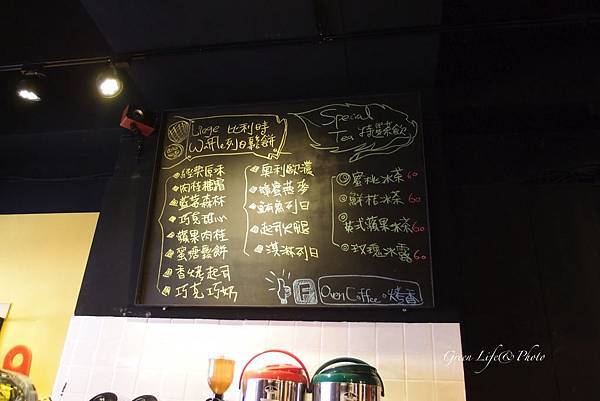 Liege 比利時
Waffle列日鬆餅
經典原味
肉桂糖霜
藍莓森林
巧克甜心
蘋果肉桂
蜜糖鬆餅
香烤起司
巧克巧奶
奧利歐濃
蜂蜜燕麥
鮪魚列日
起司火腿
淇淋列日
Special
Tea 特調茶飲
蜜桃冰茶 60
鮮桔冰茶 60
英式蘋果冰茶 60
玫瑰冰露 60
Oven Coffee。烤香
Green Life & Photo